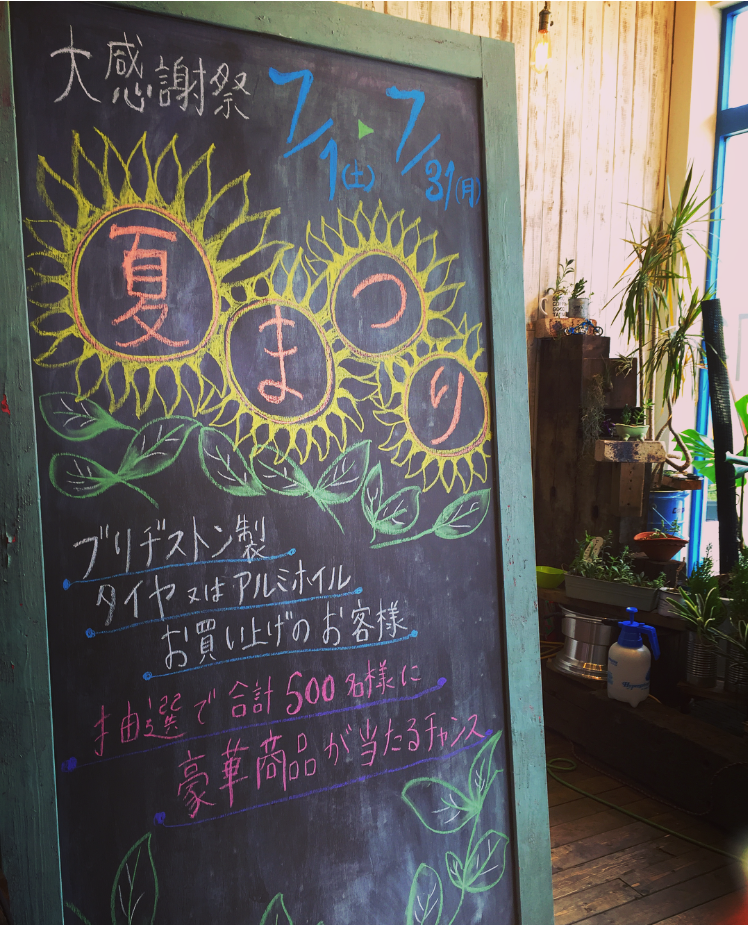 大感謝祭 7/1(土)▶7/31(月)
夏まつり
ブリヂストン製
タイヤ又はアルミホイル
お買い上げのお客様
抽選で合計500名様に
豪華商品が当たるチャンス